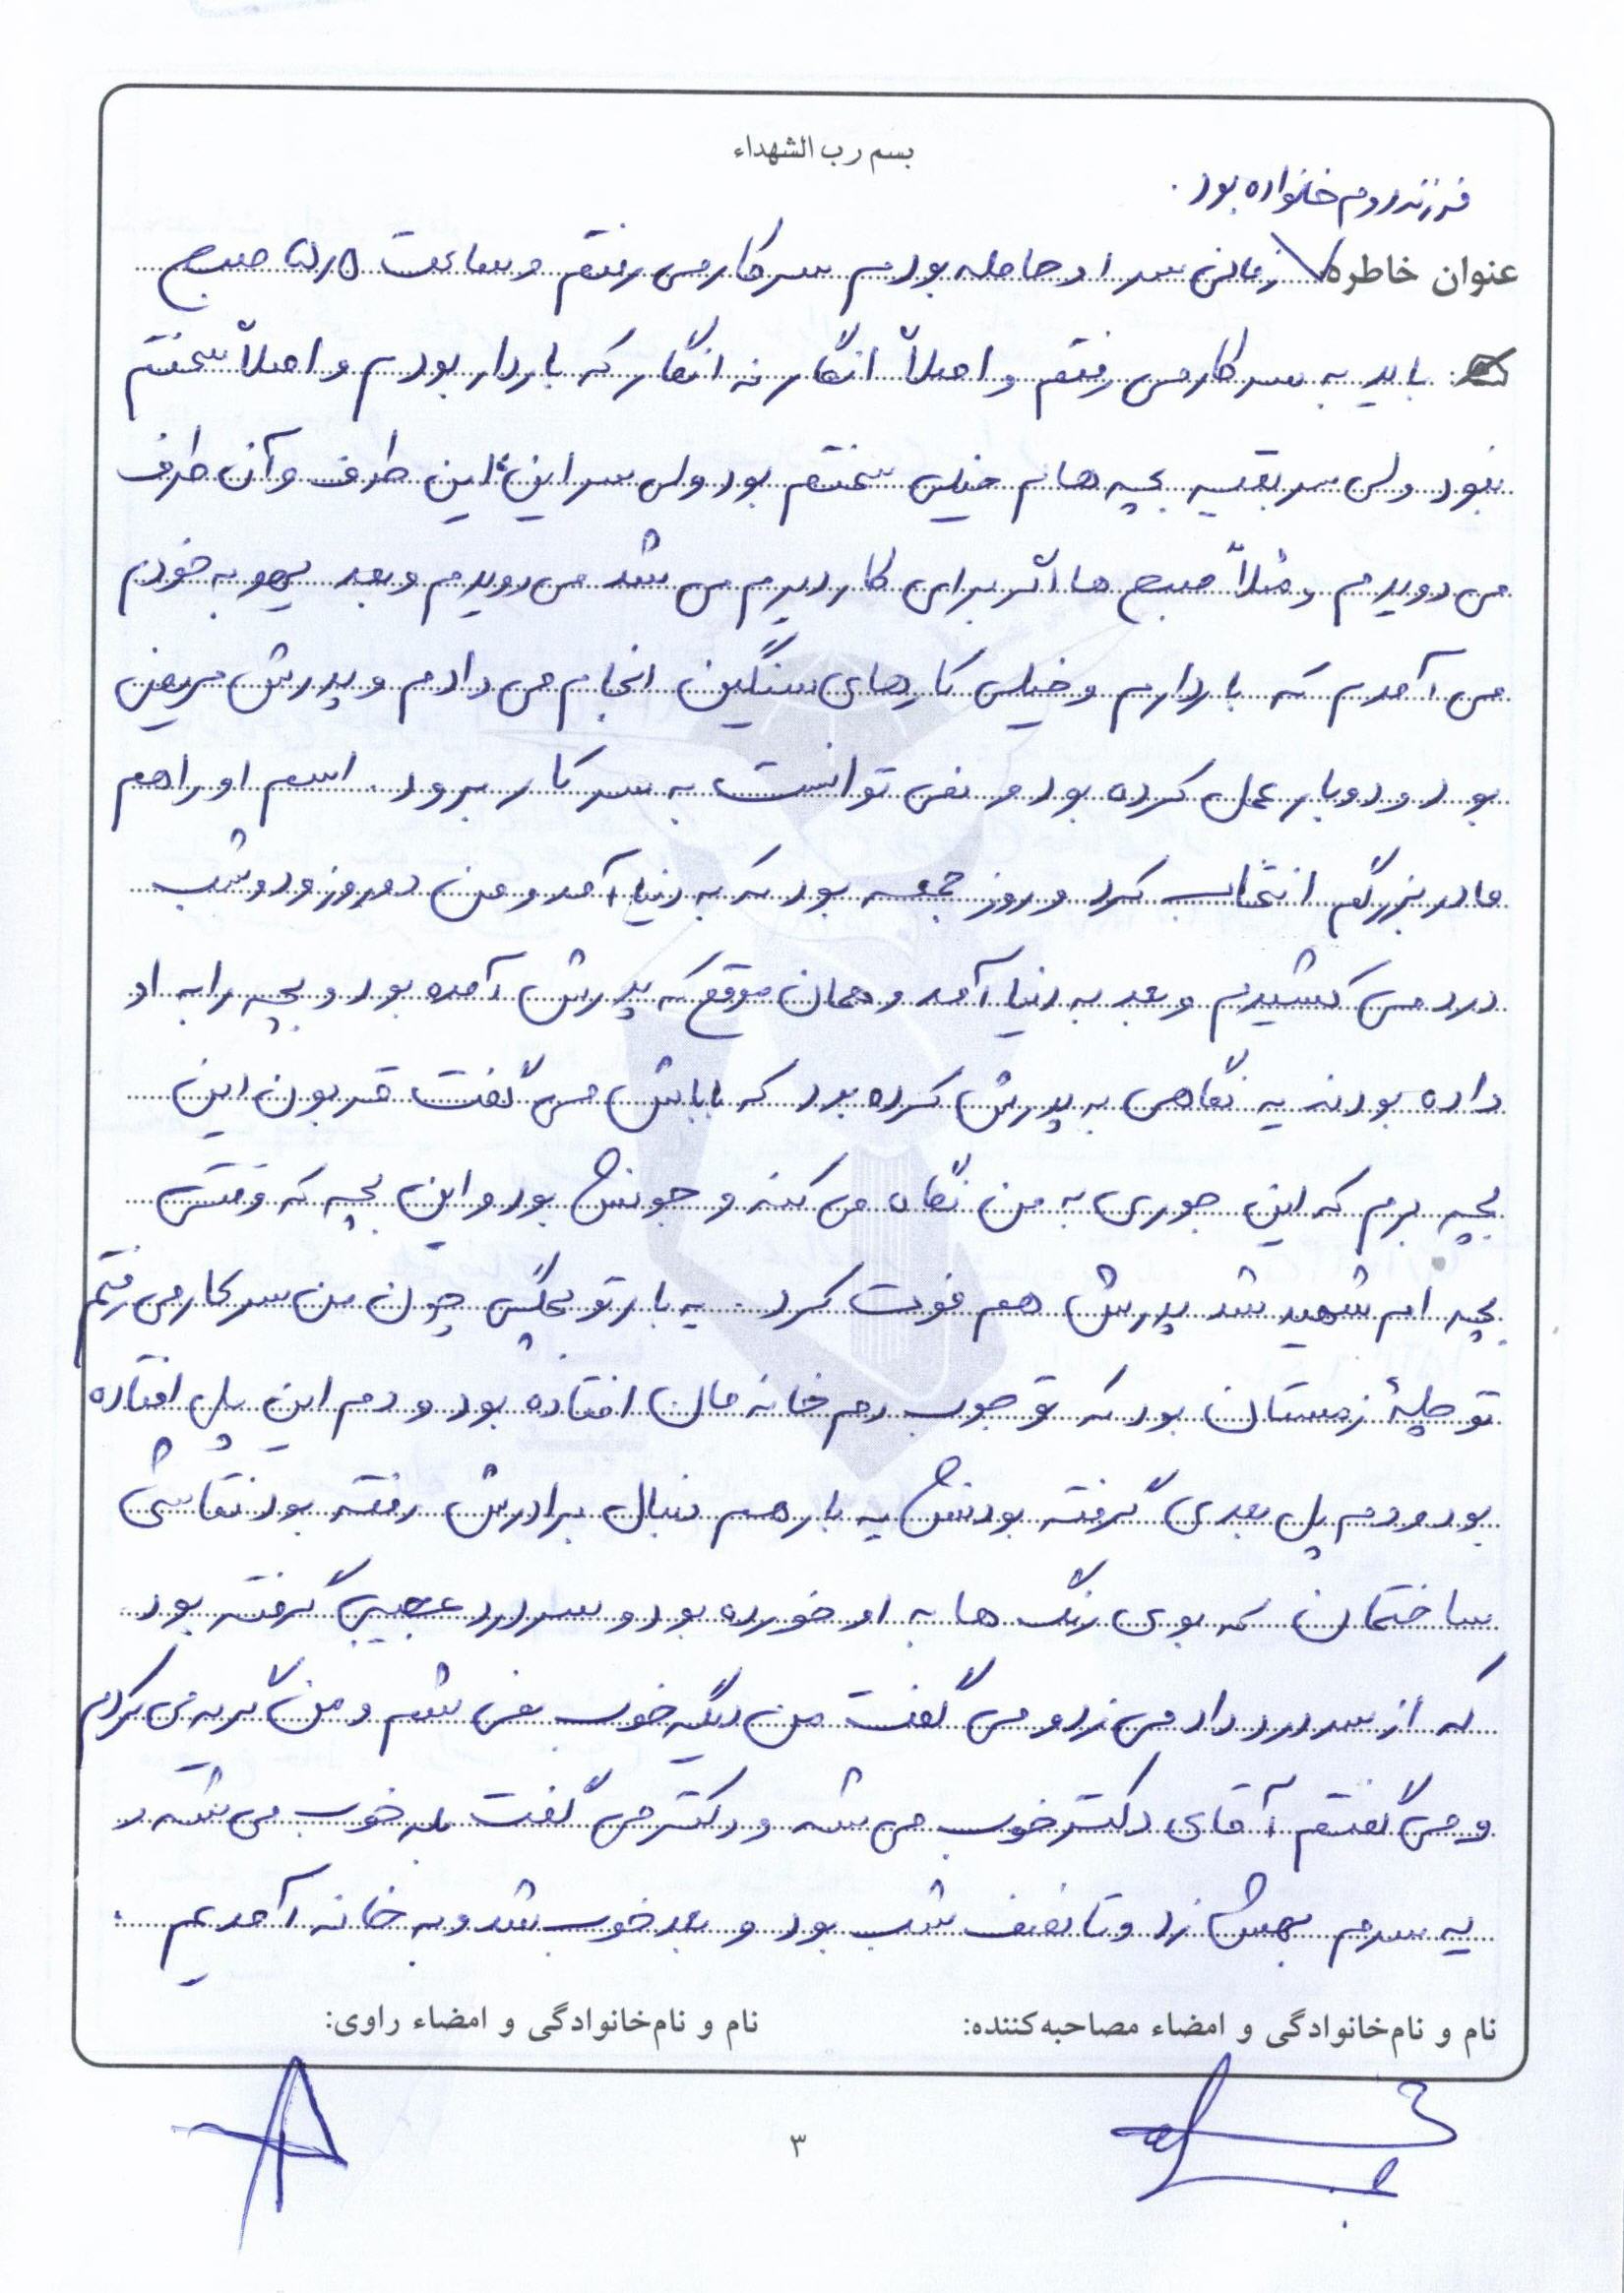 بسم رب الشهداء
فرزند دوم خانواده بود.
عنوان خاطره: زمانی سر او حامله بودم سر کار می رفتم و ساعت ۵ر۵ صبح
باید به سر کار می رفتم و اصلاً انگار نه انگار که باردار بودم و اصلاً سختم
نبود ولی سر بقیه بچه هام خیلی سختم بود ولی سر این، این طرف و آن طرف
می دویدم و مثلاً صبح ها اگر برای کار دیرم می شد می دویدم و بعد یهو به خودم
می آمدم که باردارم و خیلی کارهای سنگین انجام می دادم و پدرش مریض
بود و دوبار عمل کرده بود و نمی توانست به سر کار برود. اسم او را هم
مادربزرگم انتخاب کرد و روز جمعه بود که به دنیا آمد و من دو روز و دو شب
درد می کشیدم و بعد به دنیا آمد و همان موقع که پدرش آمده بود و بچه را به او
داده بودند یه نگاهی به پدرش کرده بود که باباش می گفت قربون این
بچه برم که این جوری به من نگاه می کنه و جونش بود و این بچه که وقتی
بچه ام شهید شد پدرش هم فوت کرد. یه بار تو بچگی چون من سر کار می رفتم
تو چلهٔ زمستان بود که تو جوب دم خانه مان افتاده بود و دم این پل افتاده
بود و دم پل بعدی گرفته بودنش یه بار هم دنبال برادرش رفته بود نقاشی
ساختمان که بوی رنگ ها به او خورده بود و سردرد عجیبی گرفته بود
که از سردرد داد می زد و می گفت من دیگه خوب نمی شم و من گریه می کردم
و می گفتم آقای دکتر خوب می شه و دکتر می گفت بله خوب می شه و
یه سرم بهش زد و تا نصف شب بود و بعد خوب شد و به خانه آمدیم.
نام و نام‌خانوادگی و امضاء مصاحبه‌کننده: نام و نام‌خانوادگی و امضاء راوی:
۳